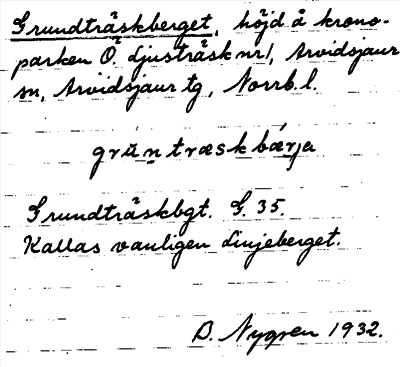 Grundträskberget, höjd å krono-
parken Ö. Ljusträsk nr 1, Arvidsjaur
sn, Arvidsjaur tg, Norrb. l.
grŭntræskbærja
Grundträskbgt. G. 35.
Kallas vanligen Linjeberget.
B. Nygren 1932.